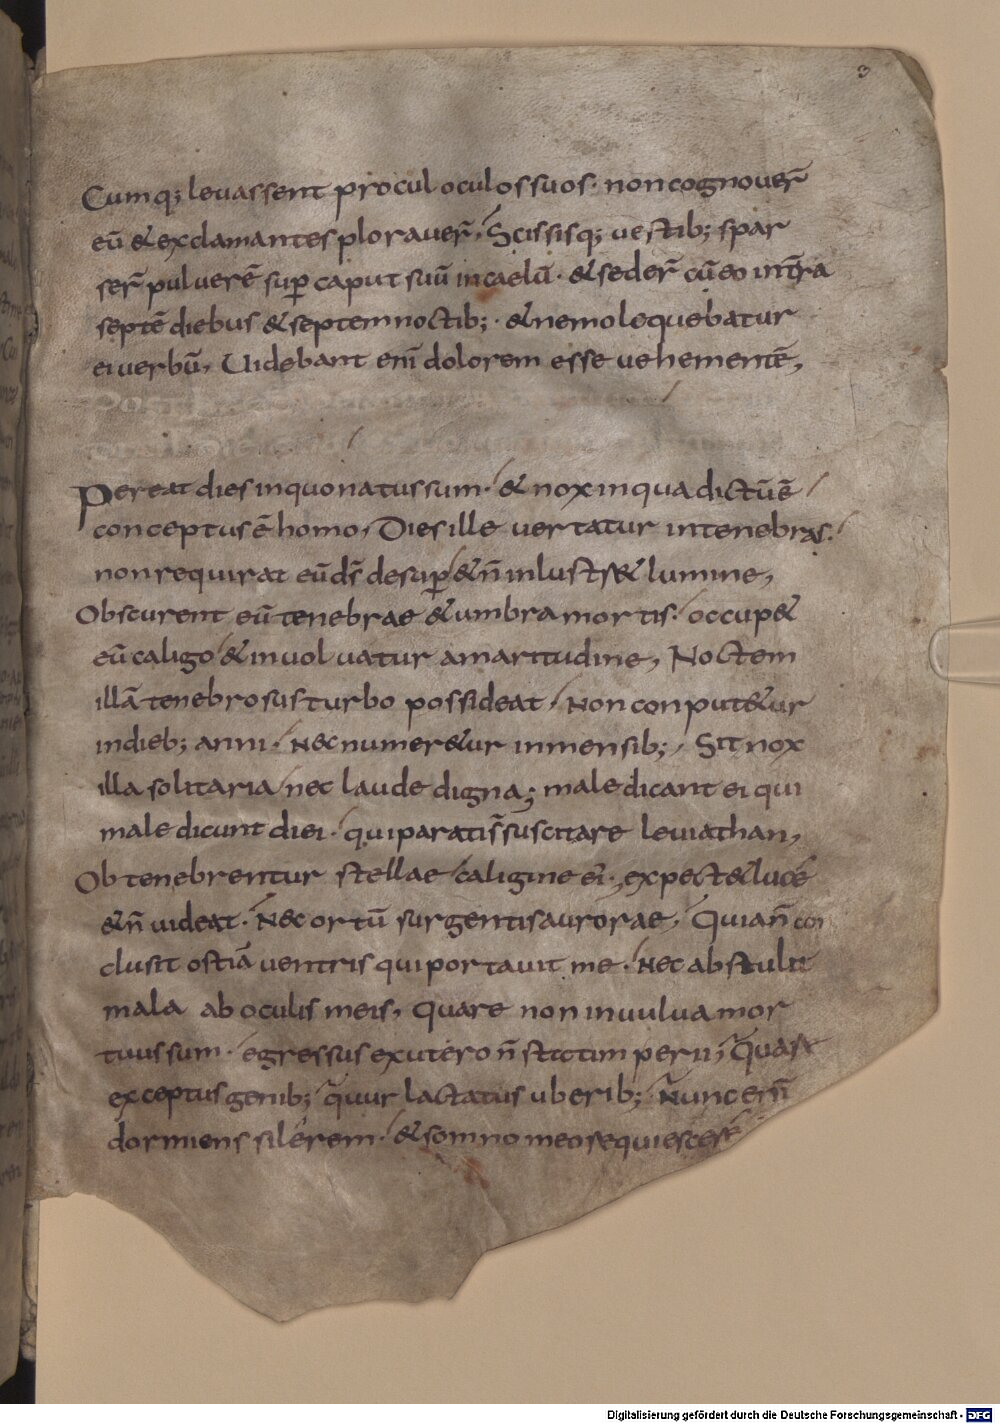 3
Cumq; levassent procul oculos suos· non cognover̄
eū & exclamantes ploraver̄, Scissisq; vestib; spar
ser̄ pulverē suꝑ caput suū in caelū· & seder̄ cū eo in terra
septē diebus & septem noctib;· & nemo lequebatur
ei verbū, Uidebant eni᷒ dolorem esse vehementē,
Pereat dies in quo natus sum· & nox in qua dictū ē
conceptus ē homo, Dies ille vertatur in tenebras·
non requirat eū ds̄ desuꝑ & n̄ inlustr&ur lumine,
Obscurent eū tenebrae & umbra mortis· occup&
eū caligo & involvatur amaritudine, Noctem
illā tenebrosus turbo possideat· Non conput&ur
in dieb; anni· Nec numer&ur in mensib;, Sit nox
illa solitaria nec laude digna; maledicant ei qui
maledicunt diei· qui parati s̄ suscitare leviathan,
Obtenebrentur stellae caligine ei᷒·, expect& lucē
& n̄ videat· Nec ortū surgentis aurorae, Quia n̄ con
clusit ostia ventris qui portavit me· Nec abstulit
mala ab oculis meis, Quare non in vulva mor
tuus sum· egressus ex utero n̄ statim perii, Quare
exceptus genib; quur lactatus uberib; Nunc enī
dormiens silerem· & somno meo requiescere
Digitalisierung gefördert durch die Deutsche Forschungsgemeinschaft - DFG